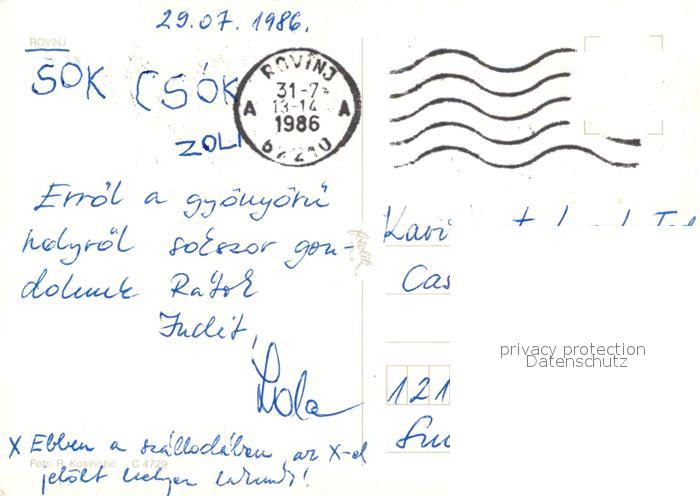 29.07.1986.
ROVINJ
SOK CSÓK
ZOLI
ROVINJ
31-7
13-14
A A
1986
52210
Erről a gyönyörű
helyről sokszor gon-
dolunk Rátok
Judit,
Lola
X Ebben a szállodában az X-el
jelölt helyen lakunk!
Foto: R. Kosinožic C 4729
Cas
121
privacy protection
Datenschutz